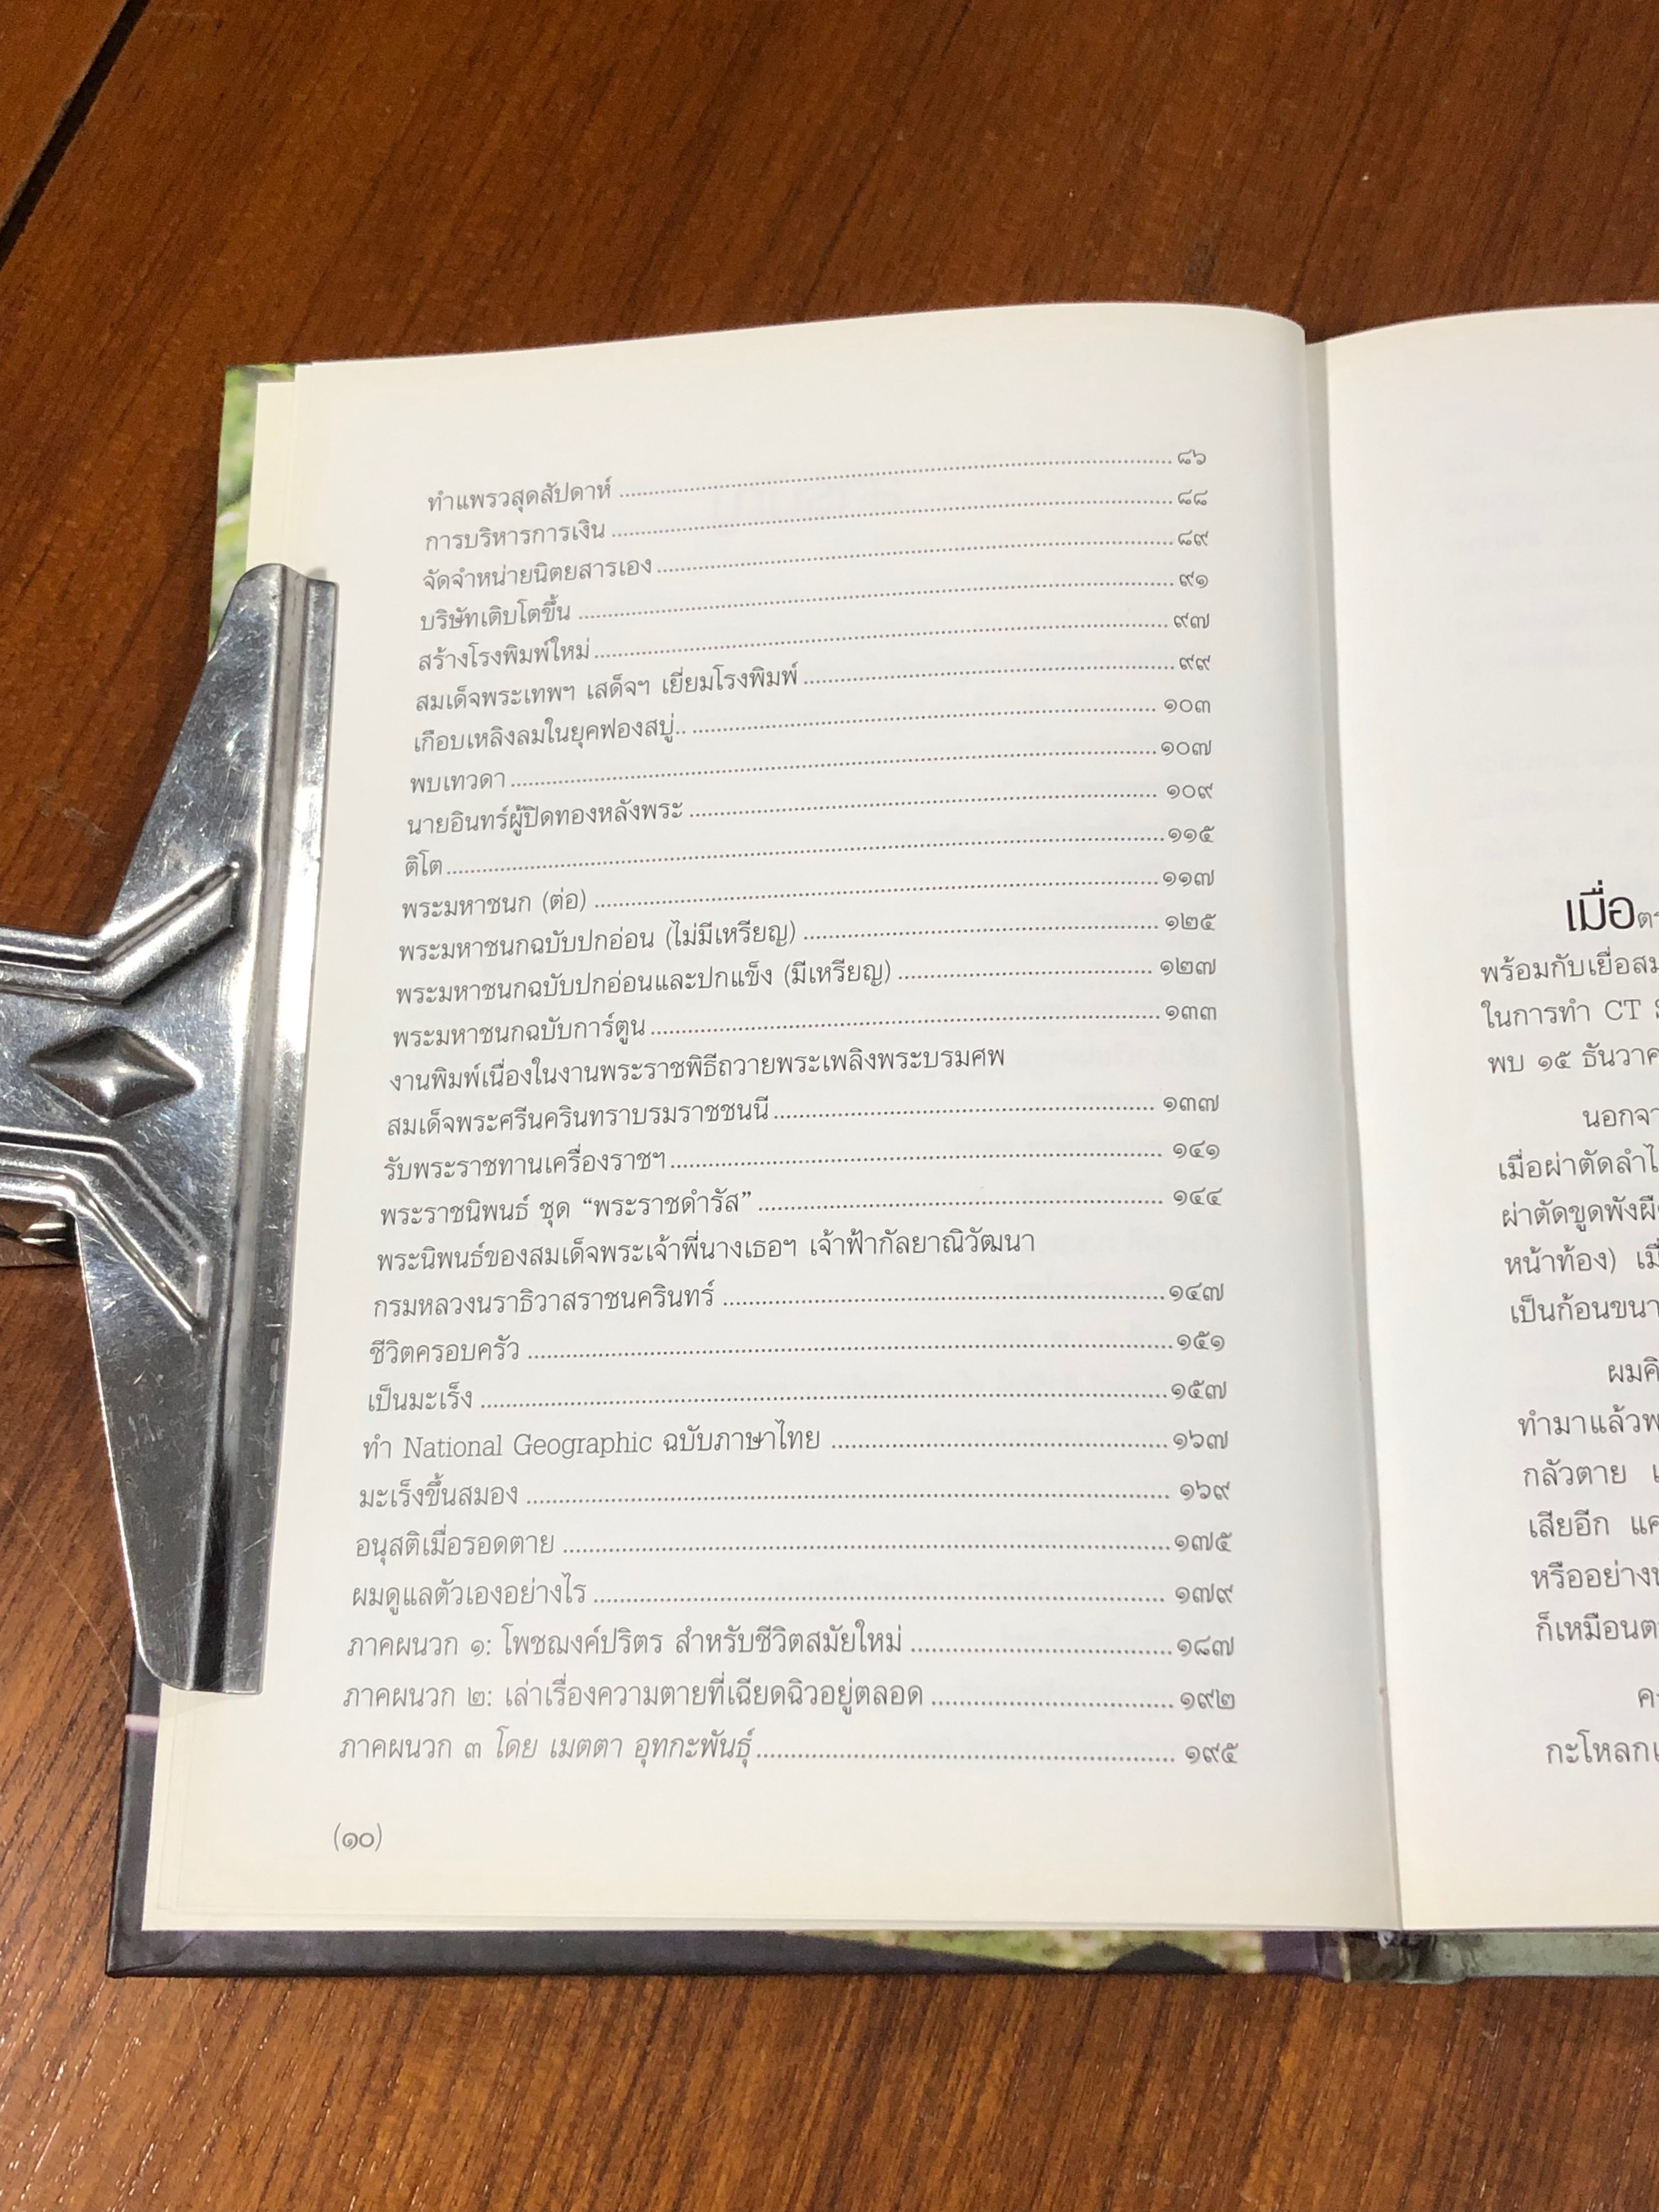 ทำแพรวสุดสัปดาห์ ................ ๘๖
การบริหารการเงิน ................ ๘๘
จัดจำหน่ายนิตยสารเอง ................ ๘๙
บริษัทเติบโตขึ้น ................ ๙๑
สร้างโรงพิมพ์ใหม่ ................ ๙๗
สมเด็จพระเทพฯ เสด็จฯ เยี่ยมโรงพิมพ์ ................ ๙๙
เกือบเหลิงลมในยุคฟองสบู่.. ................ ๑๐๓
พบเทวดา ................ ๑๐๗
นายอินทร์ผู้ปิดทองหลังพระ ................ ๑๐๙
ติโต ................ ๑๑๕
พระมหาชนก (ต่อ) ................ ๑๑๗
พระมหาชนกฉบับปกอ่อน (ไม่มีเหรียญ) ................ ๑๒๕
พระมหาชนกฉบับปกอ่อนและปกแข็ง (มีเหรียญ) ................ ๑๒๗
พระมหาชนกฉบับการ์ตูน ................ ๑๓๓
งานพิมพ์เนื่องในงานพระราชพิธีถวายพระเพลิงพระบรมศพ
สมเด็จพระศรีนครินทราบรมราชชนนี ................ ๑๓๗
รับพระราชทานเครื่องราชฯ ................ ๑๔๑
พระราชนิพนธ์ ชุด “พระราชดำรัส” ................ ๑๔๔
พระนิพนธ์ของสมเด็จพระเจ้าพี่นางเธอฯ เจ้าฟ้ากัลยาณิวัฒนา
กรมหลวงนราธิวาสราชนครินทร์ ................ ๑๔๗
ชีวิตครอบครัว ................ ๑๕๑
เป็นมะเร็ง ................ ๑๕๗
ทำ National Geographic ฉบับภาษาไทย ................ ๑๖๗
มะเร็งขึ้นสมอง ................ ๑๖๙
อนุสติเมื่อรอดตาย ................ ๑๗๕
ผมดูแลตัวเองอย่างไร ................ ๑๗๙
ภาคผนวก ๑: โพชฌงค์ปริตร สำหรับชีวิตสมัยใหม่ ................ ๑๘๗
ภาคผนวก ๒: เล่าเรื่องความตายที่เฉียดฉิวอยู่ตลอด ................ ๑๙๒
ภาคผนวก ๓ โดย เมตตา อุทกะพันธุ์ ................ ๑๙๕
(๑๐)
เมื่อ
พร้อมกับเยื่อ
ในการทำ CT
พบ ๑๕ ธันวาค
นอกจา
เมื่อผ่าตัดลำไ
ผ่าตัดขูดพังผื
หน้าท้อง) เมื่
เป็นก้อนขนา
ผมคิ
ทำมาแล้วพ
กลัวตาย
เสียอีก แค
หรืออย่าง
ก็เหมือนต
กะโหลก